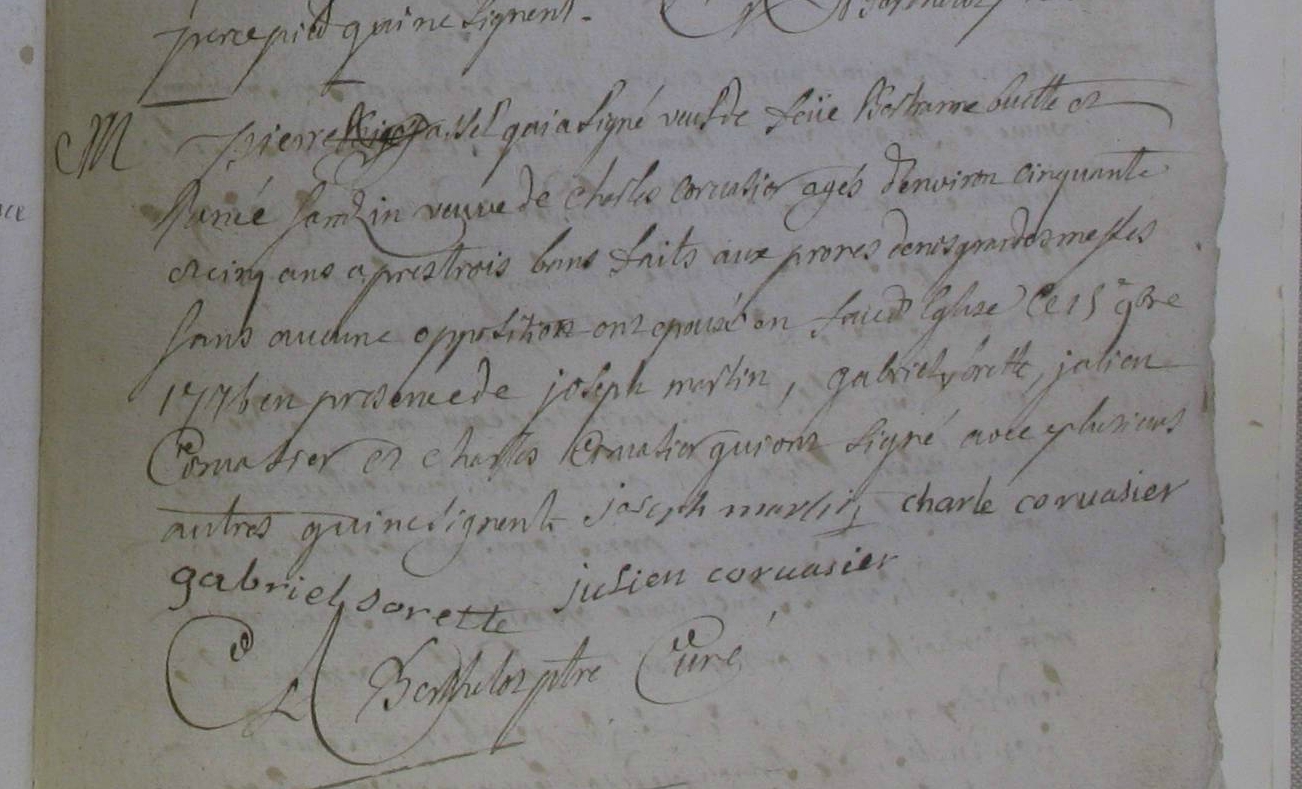 percepied qui ne signent.
M
pierre assel qui a signé veuf de feüe buette et
Renée Janzin veuve de charles corvasier agés d'environ cinquante
et cinq ans apres trois bans faits aux prones de nos grandes messes
sans aucune opposition ont epousé en Eglise Ce 15e 9bre
1776 en presence de joseph martin, gabriel sorette, julien
Corvasier et charles Corvasier qui ont signé avec plusieurs
autres qui ne signent joseph martin charle corvasier
gabriel sorette julien corvasier
Berthelot ptre Curé